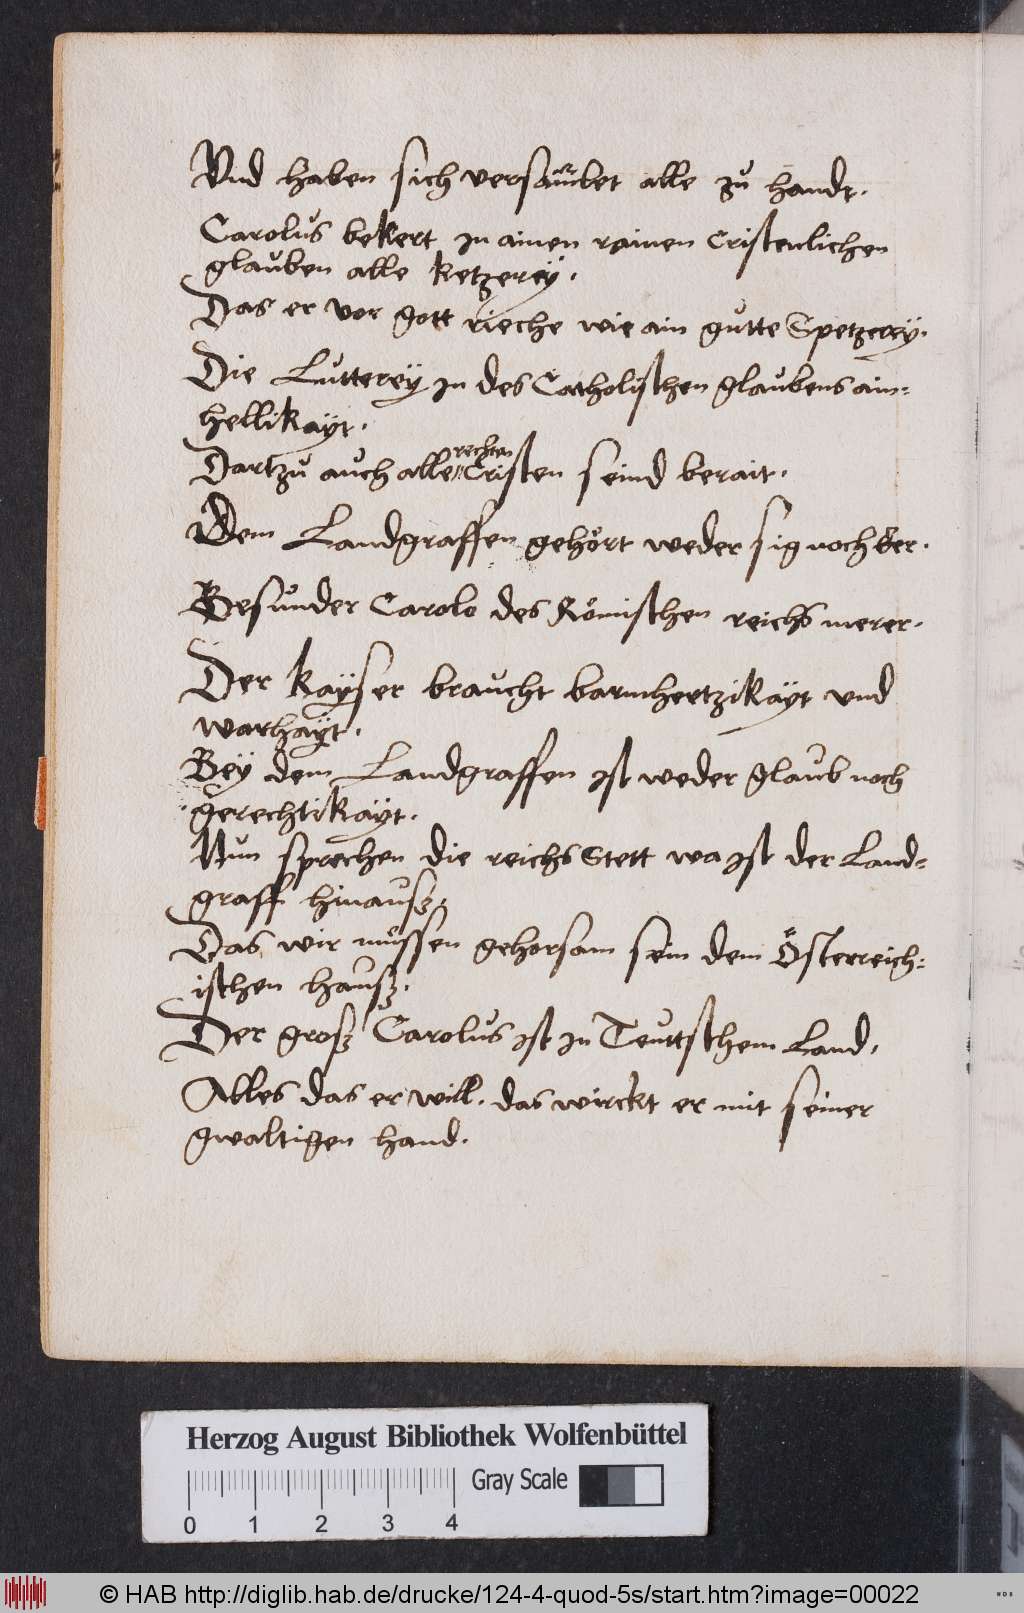 Vnd haben sich versam̃bet alle zů handt.
Carolus bekert in ainen rainen Cristenlichen
glauben alle ketzereÿ.
Das er vor gott rieche wie ain gutte Spetzereÿ.
Die Luttereÿ in des Catholischen glaubens ain=
hellikaÿt.
Dartzu auch alle rechten Cristen seind berait.
Dem Landgraffen gehört weder sig noch Eer.
Besunder Carolo des Römischen reichs merer.
Der kaÿser braucht barmhertzikaÿt vnd
warhaÿt.
Beÿ dem Landgraffen ist weder glaub noch
gerechtikaÿt.
Nun sprechen die reichs Stett wa ist der Land=
graff hinausz.
Das wir müssen gehorsam sein dem Österreich=
ischen hausz.
Der grosz Carolus ist in Teuttschem Land.
Alles das er will. das wirckt er mit seiner
gwaltigen hand.
Herzog August Bibliothek Wolfenbüttel
Gray Scale
0 1 2 3 4
© HAB http://diglib.hab.de/drucke/124-4-quod-5s/start.htm?image=00022